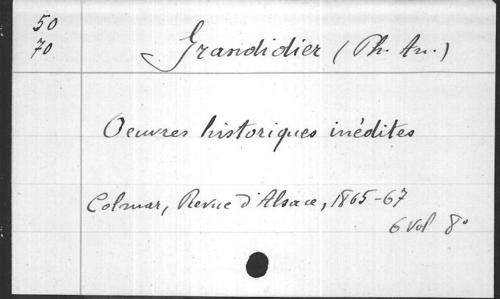 50
70
Grandidier (Ph. An.)
Oeuvres historiques inédites
Colmar, Revue d'Alsace, 1865-67
6 vol 8°